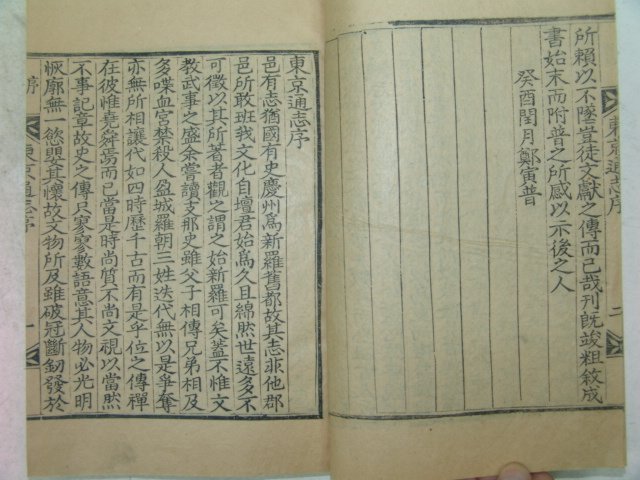 所賴以不墜豈徒文獻之傳而已哉刊旣竣粗敘成
書始末而附普之所感以示後之人
癸酉閏月鄭寅普
東京通志序
二
東京通志序
邑有志猶國有史慶州爲新羅舊都故其志非他郡
邑所敢班我文化自壇君始爲久且綿然世遠多不
可徵以其所著者觀之謂之始新羅可矣蓋不惟文
教武事之盛余嘗讀支那史雖父子相傳兄弟相及
多喋血宮禁殺人盈城羅朝三姓迭代無以是爭奪
亦無所相讓代如四時歷千古而有是乎位之傳禪
在彼惟堯舜焉而已當是時尚質不尚文視以當然
不事記章故史之傳只寥寥數語意其人物必光明
恢廓無一慾嬰其懷故文物所及雖破冠斷釰發於
序
東京通志序
一